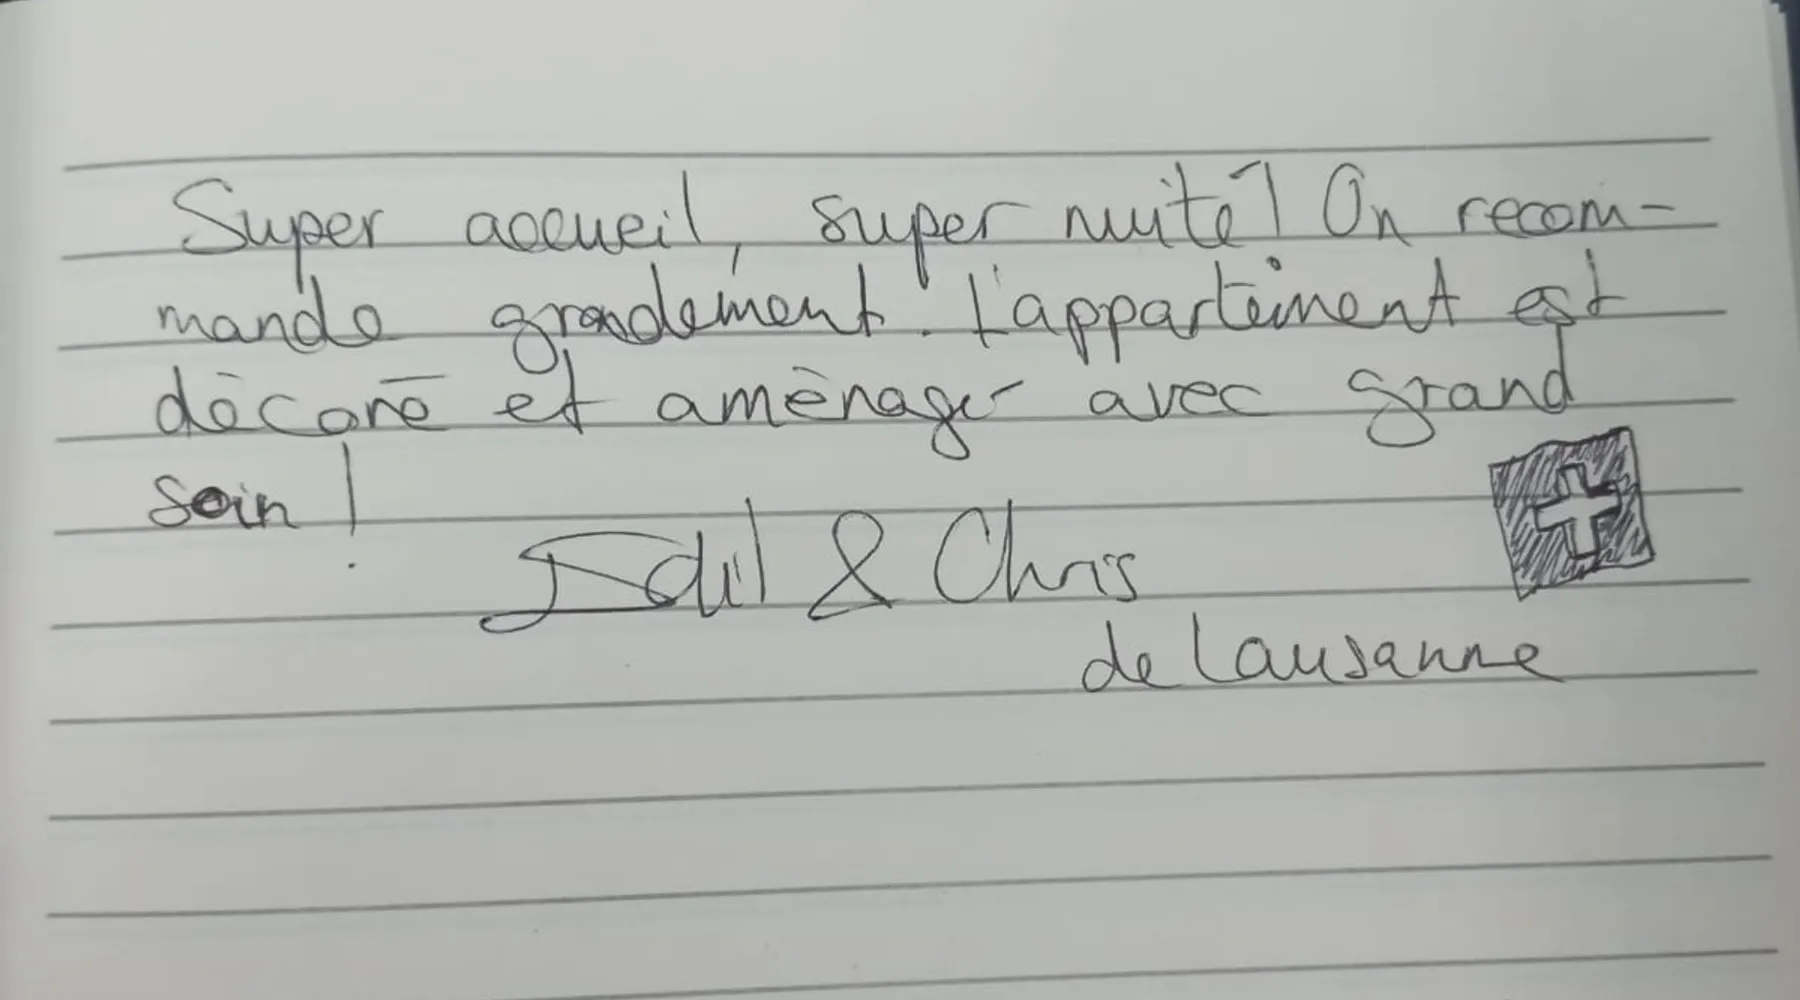 Super accueil, super nuité! On recom-
mande grandement. L'appartement est
décoré et aménager avec grand
soin!
& Chris
de Lausanne